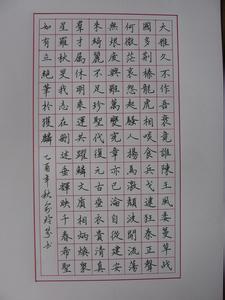 大雅久不作吾衰竟誰陳王風委蔓草戰
國多荊榛龍虎相啖食兵戈逮狂秦正聲
何微茫哀怨起騷人揚馬激頹波開流蕩
無垠廢興雖萬變憲章亦已淪自從建安
來綺麗不足珍聖代復元古垂衣貴清真
群才屬休明乘運共躍鱗文質相炳煥衆
星羅秋旻我志在刪述垂輝映千春希聖
如有立絕筆於獲麟 乙酉年秋